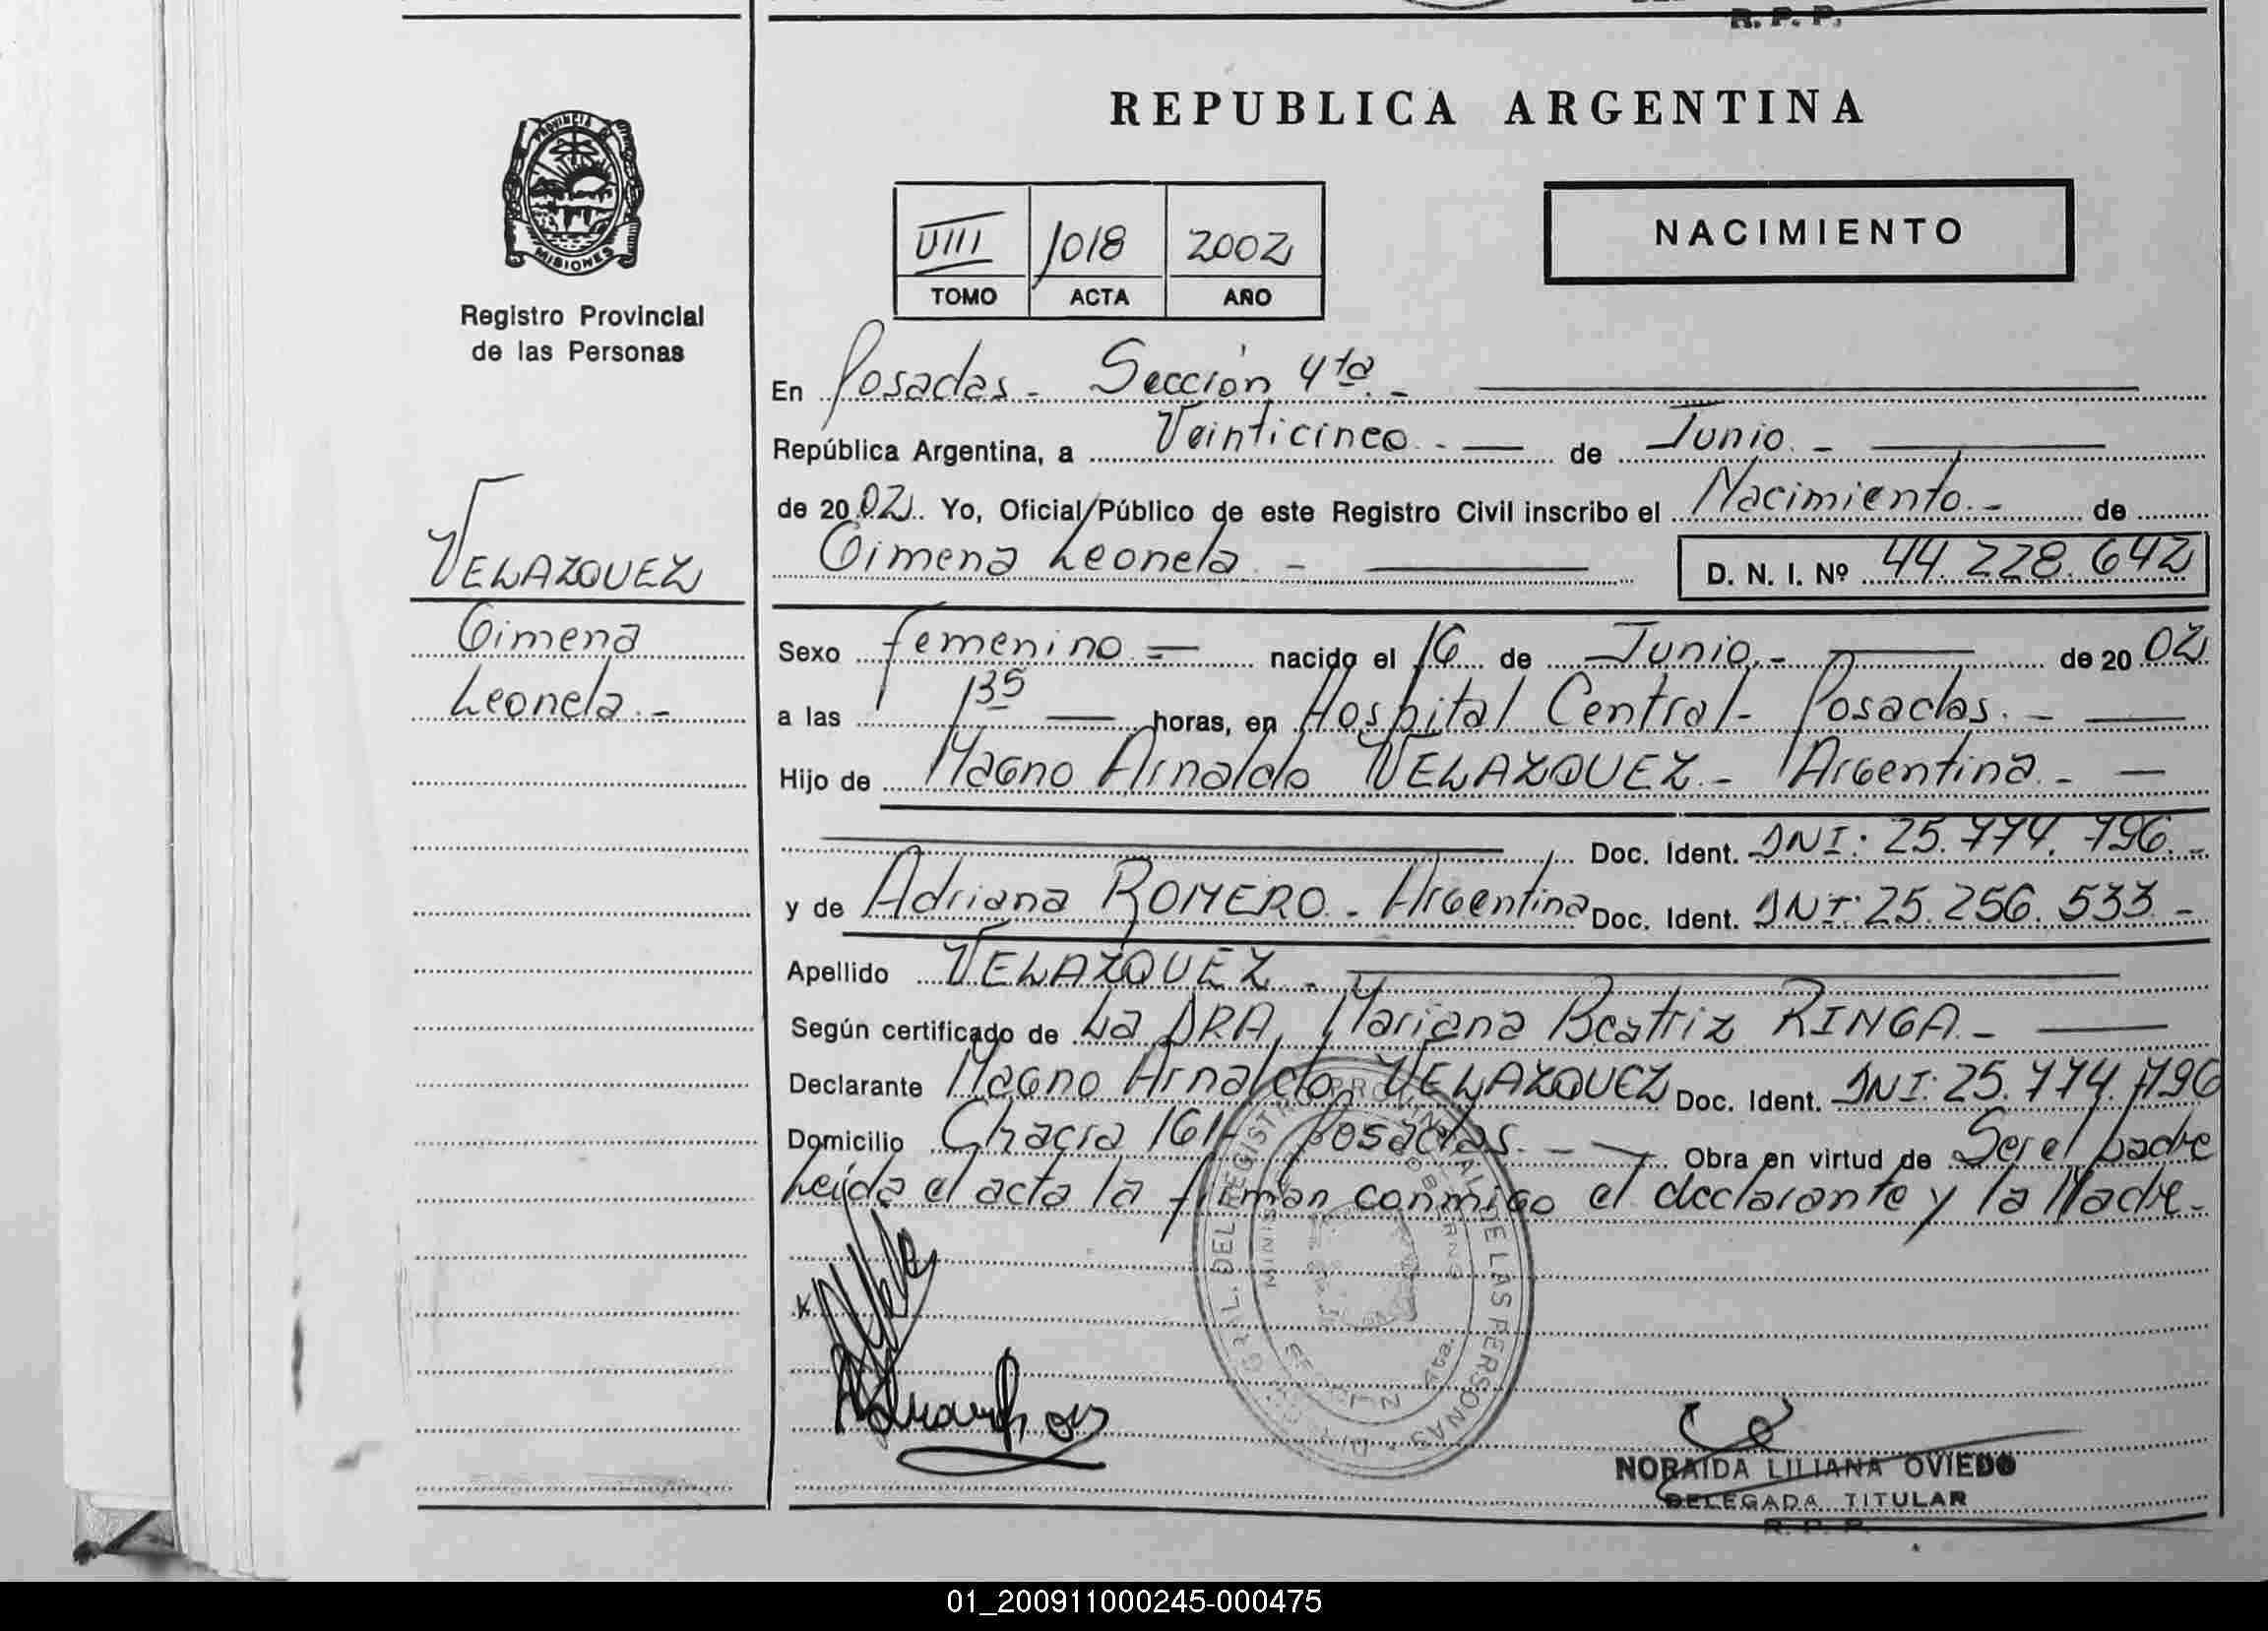 R. P. P.
REPUBLICA ARGENTINA
PROVINCIA DE
MISIONES
Registro Provincial
de las Personas
VIII 1018 2002
TOMO ACTA AÑO
NACIMIENTO
En Posadas - Sección 4ta. -
República Argentina, a Veinticinco. - de Junio. -
de 2002. Yo, Oficial Público de este Registro Civil inscribo el Nacimiento. - de
Gimena Leonela - D. N. I. Nº 44.228.642
VELAZQUEZ
Gimena
Leonela. -
Sexo femenino = nacido el 16 de Junio. - de 2002
a las 1 35 horas, en Hospital Central - Posadas. -
Hijo de Magno Arnaldo VELAZQUEZ - Argentina. -
Doc. Ident. DNI: 25.774.796. -
y de Adriana ROMERO - Argentina Doc. Ident. DNI: 25.256.533 -
Apellido VELAZQUEZ -
Según certificado de La DRA, Mariana Beatriz RINGA. -
Declarante Magno Arnaldo VELAZQUEZ Doc. Ident. DNI: 25.774.796
Domicilio Chacra 161 - Posadas. - Obra en virtud de Ser el padre
Leída el acta la firman conmigo el declarante y la Madre. -
DEL REGISTRO PROVINCIAL DE LAS PERSONAS
4ta.
NORAIDA LILIANA OVIEDO
DELEGADA TITULAR
R. P. P.
01_200911000245-000475